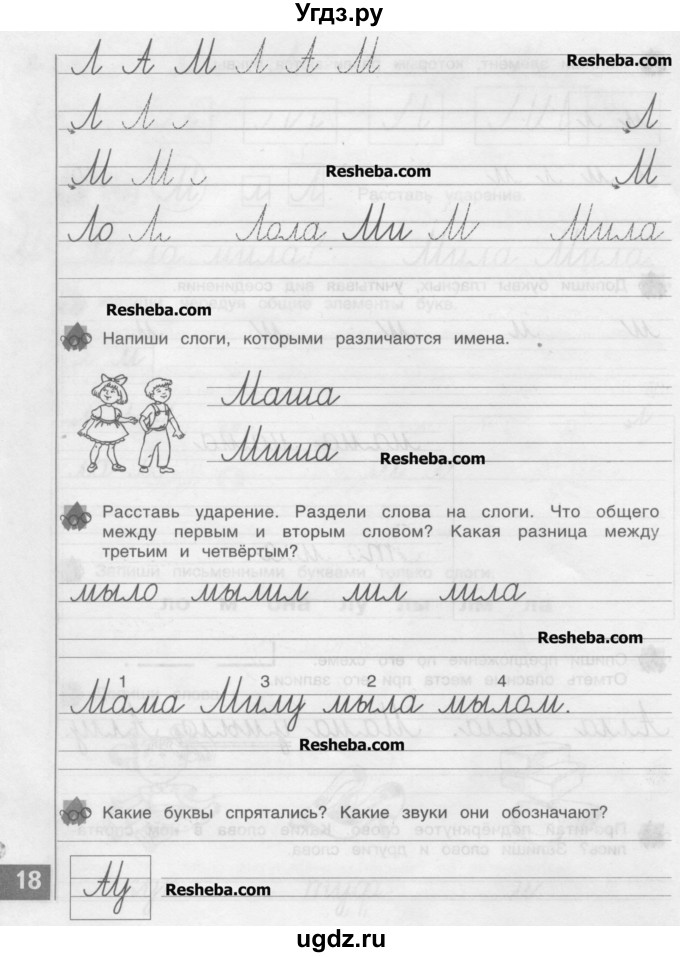 Угдз.ру
Л А М Л А М
Resheba.com
Л Л Л
М М Resheba.com М
Ло Л Лола Ми М Мила
Resheba.com
Напиши слоги, которыми различаются имена.
Маша
Миша Resheba.com
Расставь ударение. Раздели слова на слоги. Что общего
между первым и вторым словом? Какая разница между
третьим и четвёртым?
мыло мылил лил лила
Resheba.com
1 3 2 4
Мама Милу мыла мылом.
Resheba.com
Какие буквы спрятались? Какие звуки они обозначают?
18
Resheba.com
ugdz.ru